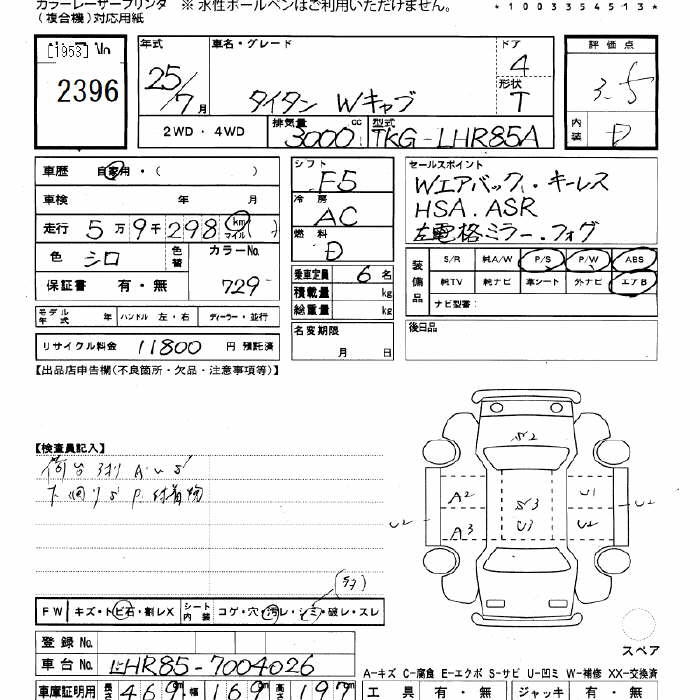 カラーレーザープリンタ ※ 水性ボールペンはご利用いただけません。 *1003354513*
(複合機)対応用紙
[1953] No
2396
年式 車名・グレード ドア 評価点
25/7月 タイタン Wキャブ 4 3.5
形状 T
2WD・4WD 排気量 3000cc 型式 TKG-LHR85A 内装 D
車歴 自家用・( )
シフト F5
セールスポイント
Wエアバック・キーレス
HSA.ASR
左電格ミラー.フォグ
車検 年 月
冷房 AC
走行 5万9千298 km マイル
燃料 D
色 シロ 色替 カラーNo. 729
装備品 S/R 純A/W P/S P/W ABS
純TV 純ナビ 革シート 外ナビ エアB
ナビ型番:
保証書 有・無
乗車定員 6名
積載量 kg
総重量 kg
モデル年式 年 ハンドル 左・右 ディーラー・並行
名変期限 月 日
後日品
リサイクル料金 11800 円 預託済
【出品店申告欄(不良箇所・欠品・注意事項等)】
【検査員記入】
荷台 A U S
下回りS P 付着物
S2
A2 S3 U1
U2 A3 U3 U2 U2
FW キズ・トビ石・割レX シート内装 コゲ・穴・汚レ・シミ・破レ・スレ
スペア
登録No.
車台No. LHR85-7004026
A-キズ C-腐食 E-エクボ S-サビ U-凹ミ W-補修 XX-交換済
車庫証明用 長さ 469 幅 169 高さ 197
工具 有・無 ジャッキ 有・無